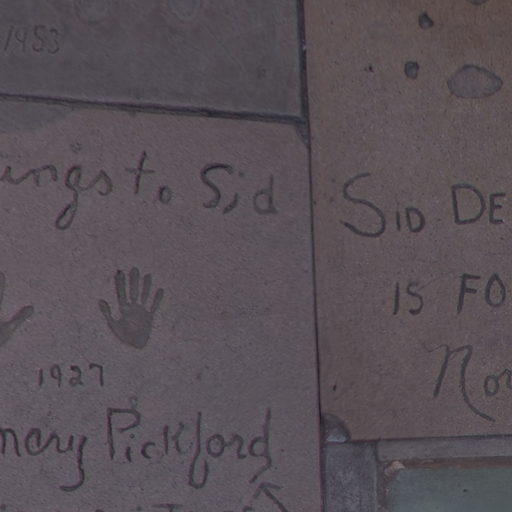 1953
ings to Sid
1927
mary Pickford
SID DE
IS FO
Nor